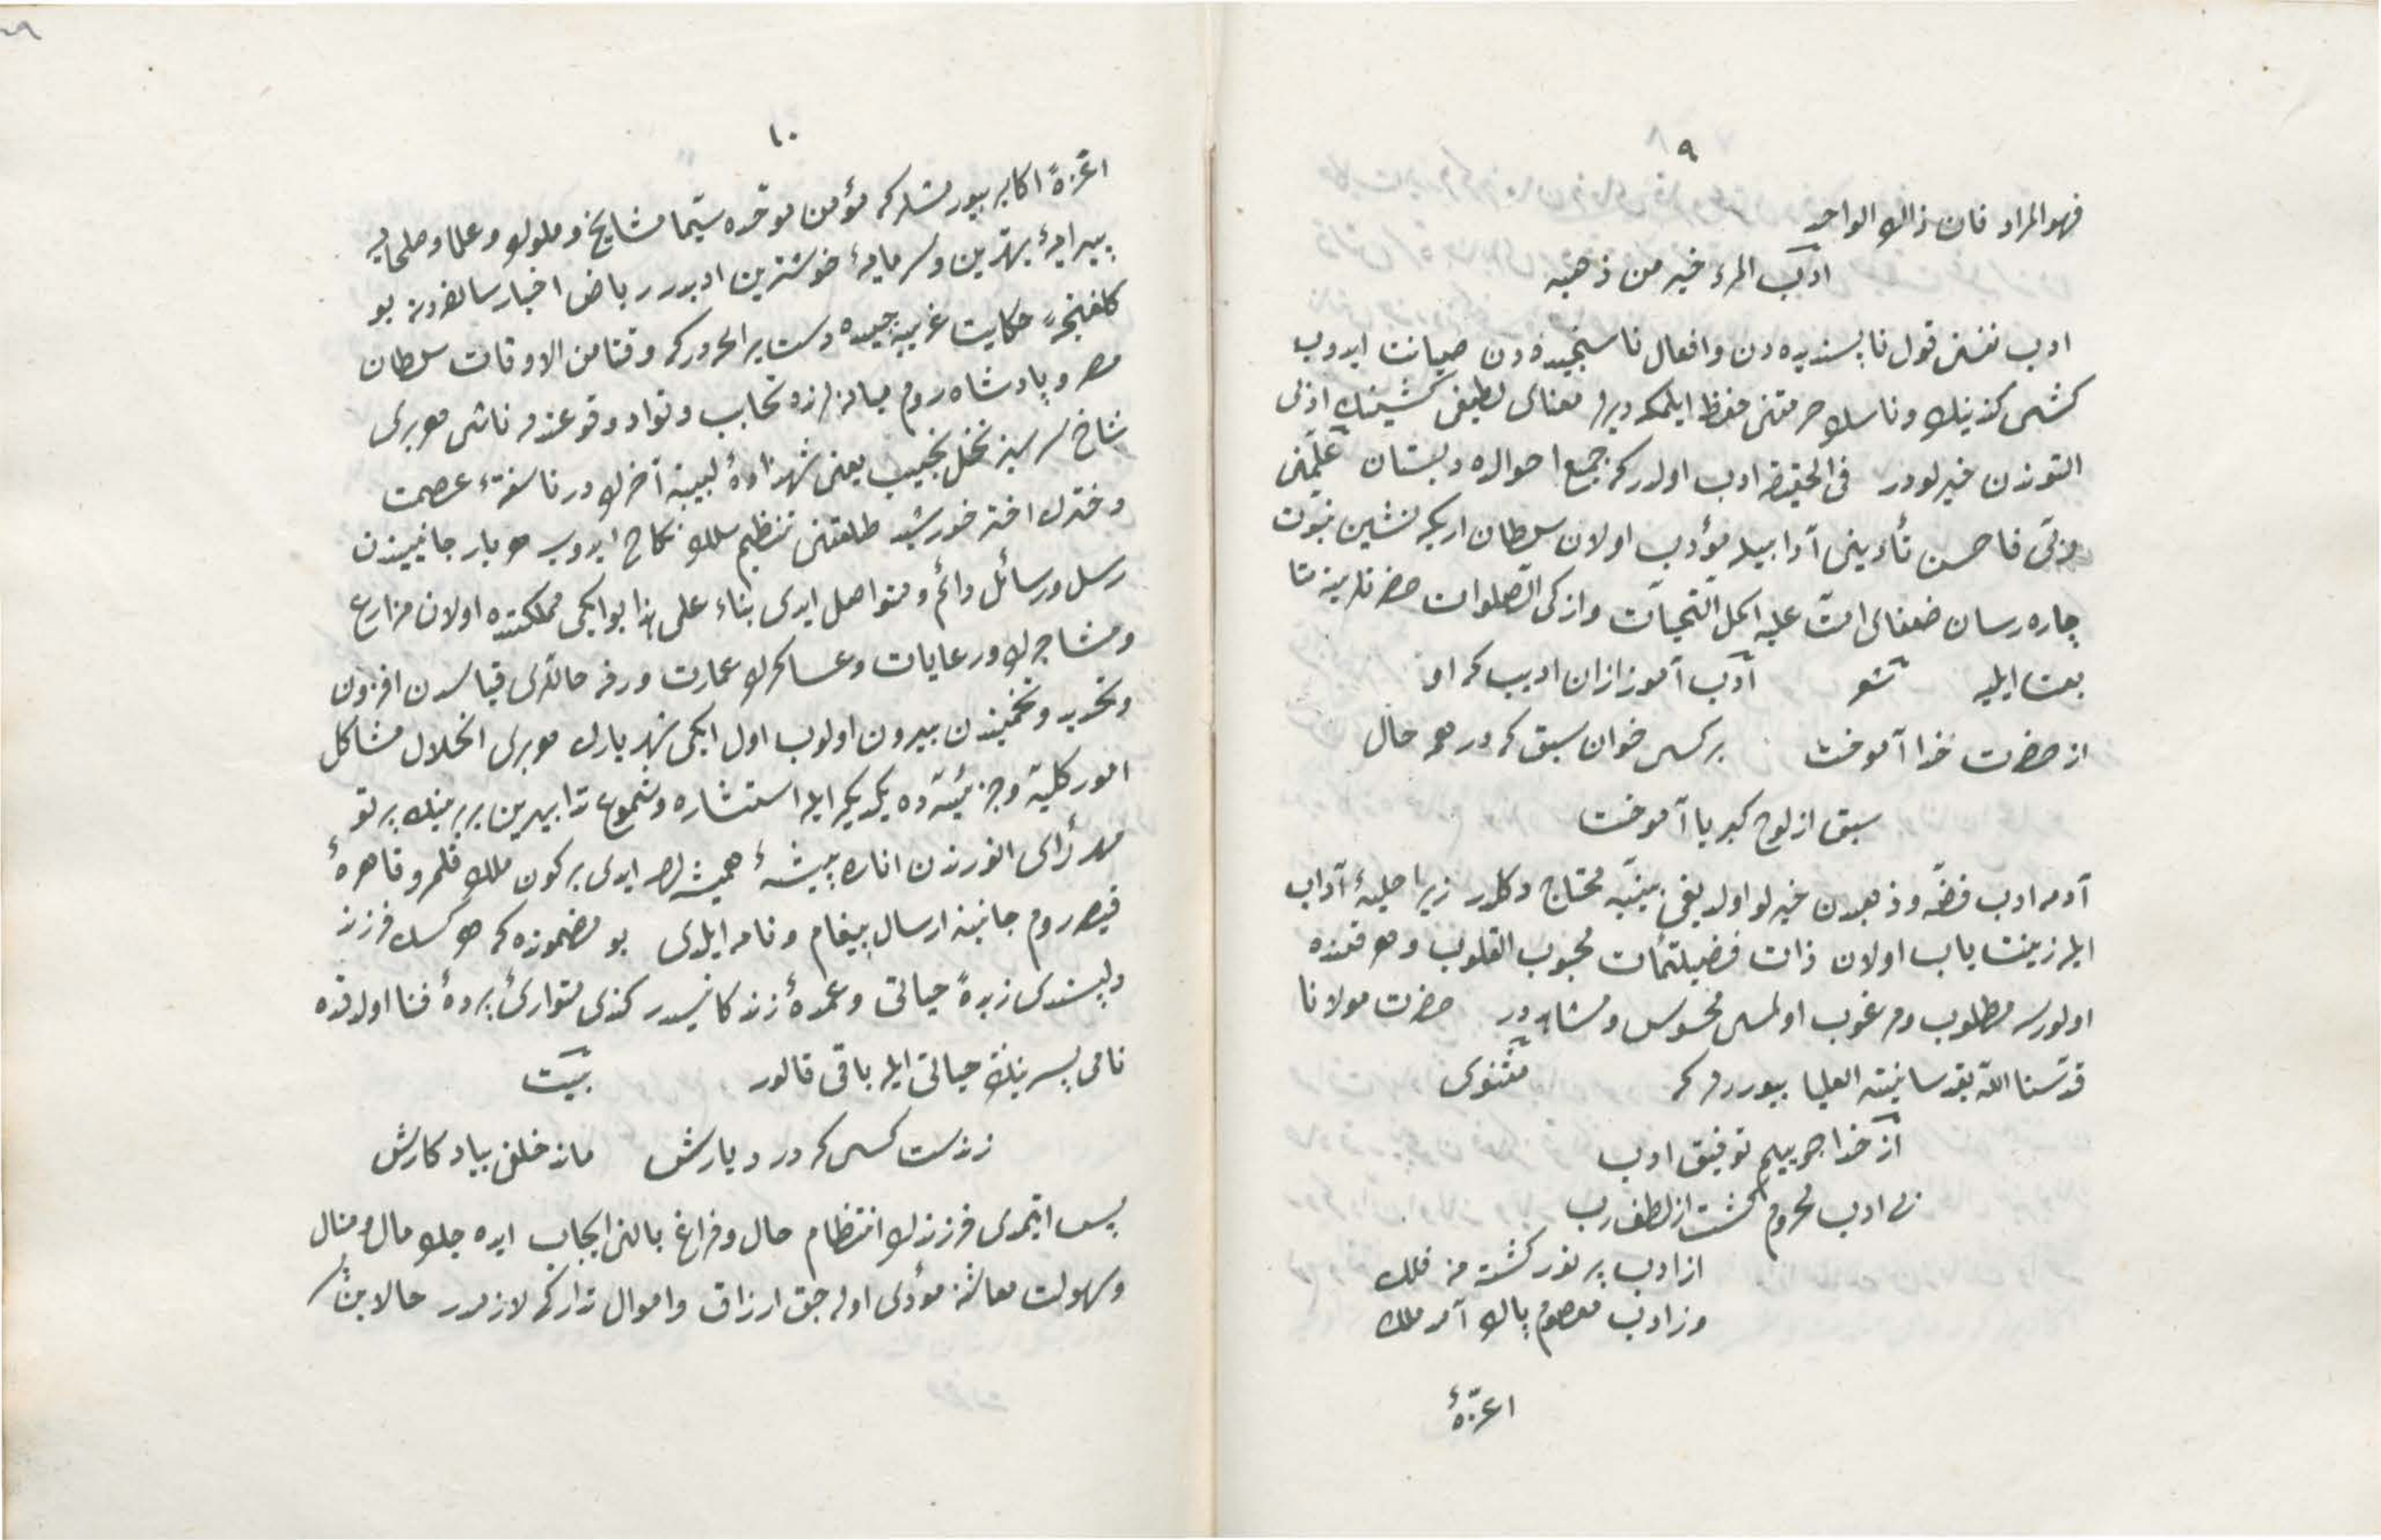 ٩
فهو المراد فان ذاك الواحد
ادب المرء خير من ذهبه
ادب نفسنى قول ناپسنديده دن وافعال ناسنجيده دن صيانت ايدوب
كشى كندينك وناسك حرمتنى حفظ ايلمكه ديرلر معناى لطيفى كشينك ادبى
التوندن خيرلودر فى الحقيقه ادب اولدركه جميع احوالده دبستان علّمنى
ربّى فاحسن تأديبى آدابيله مؤدب اولان سلطان اريكه نشين نبوّت
چاره رسان ضعفاى امّت عليه اكمل التحيات وازكى الصلوات حضرتلرينه
ايليه شعر ادب آموز ازان اديب كه او
از حضرت خدا آموخت بر كسى خوان سبق كه در همه حال
سبق از لوح كبريا آموخت
آدمه ادب فضّه وذهبدن خيرلو اولديغى بيّنيه محتاج دكلدر زيرا حليۀ آداب
ايله زينت ياب اولان ذات فضيلتمآت محبوب القلوب وهر قنده
اولورسه مطلوب ومرغوب اولمسى محسوس ومشاهددر حضرت مولانا
قدّسنا اللّه بقدسانيته العليا بيوررلر كه مثنوى
از خدا جوييم توفيق ادب
بى ادب محروم گشت از لطف رب
از ادب پر نور گشته است فلك
وز ادب معصوم پاك آمد ملك
اعزّۀ
١٠
اعزّۀ اكابر بيورمشلركه مؤمن موحّده سيّما مشايخ وملوك وعلما وصلحايه
پيرايۀ بهترين وسرمايۀ خوشترين ادبدر رياض اخبار سالفه دن بو
حكايت غريبه چيده دست يراعه دركه وقتا من الاوقات سلطان
مصر وپادشاه روم ميانه لرنده تحابب وتوادد وقوعندن ناشى هر برى
شاخ سرسبز نخل نجيب يعنى شهزادۀ لبيبنه آخرك در ناسفتۀ عصمت
ودخترك اختر خورشيد طلعتنى تنظيم سلك نكاح ايدوب هر بار جانبيندن
رسل ورسائل دائم ومتواصل ايدى بناءً على هذا بو ايكى مملكتده اولان مزارع
ومتاجرك ورعايات وعساكرك عمارت ورفه حاللرى قياسدن افزون
وتحديد وتخميندن بيرون اولوب اول ايكى شهريارك هر برى انحلال مشاكل
امور كليّه وجزئيّه ده يكديكر ايله استشاره وشموع تدابيرين بربرينك پرتو
مهر رأى انورندن اناره پيشۀ هميشه لرى ايدى بر كون ملك قلمرو قاهره
قيصر روم جانبنه ارسال پيغام ونامه ايلدى بو مضمونده كه هر كسك فرزند
دلپسندى زبدۀ حياتى وعمدۀ زندكانيسيدر كندى متوارئ پردۀ فنا اولدقده
نامى پسرينك حياتى ايله باقى قالور بيت
زندست كسى كه در ديارش ماند خلفى بياد كارش
پس ايمدى فرزندك انتظام حال وفراغ بالنى ايجاب ايده جك مال ومنال
وسهولت معاشنه مؤدّى اوله جق ارزاق واموال تداركى لازمدر حالا بن